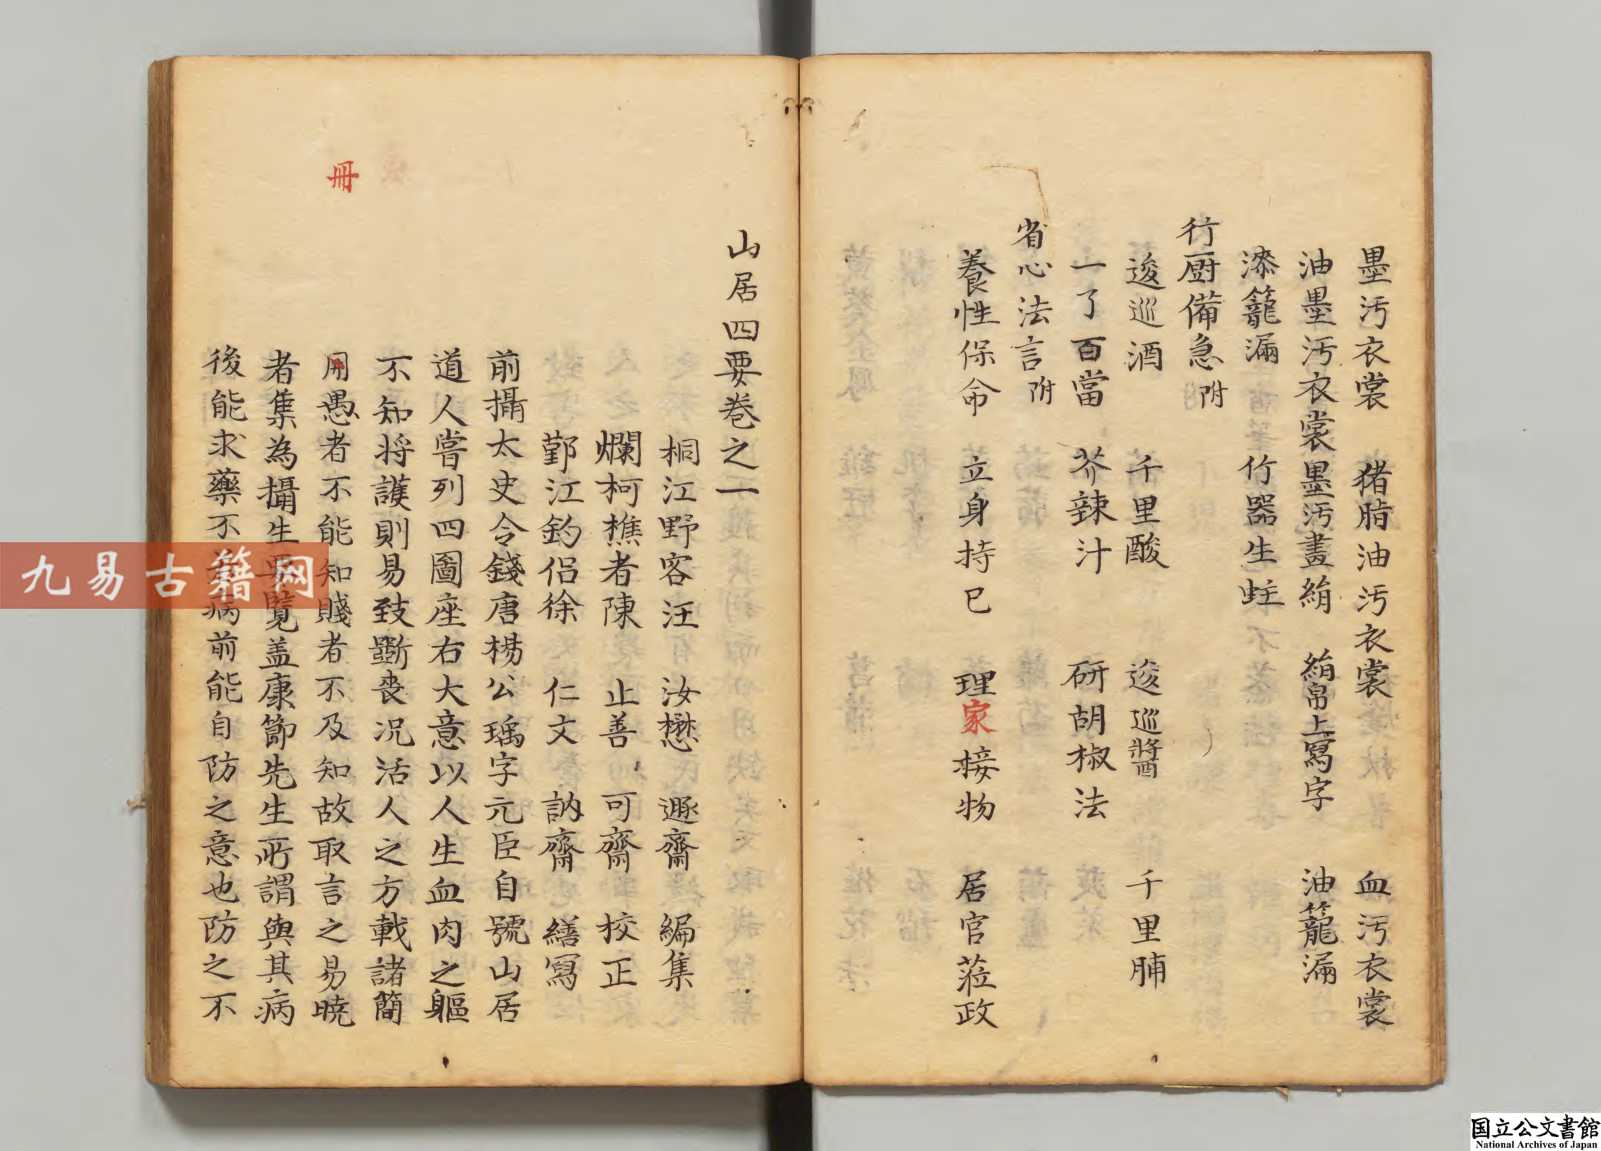 墨汚衣裳　猪脂油汚衣裳　血汚衣裳
油墨汚衣裳　墨汚畫絹　絹帛上寫字　油籠漏
漆籠漏　竹器生蛀
行厨備急附
逡巡酒　千里酸　逡巡醬　千里脯
一了百當　芥辣汁　研胡椒法
省心法言附
養性保命　立身持已　理家接物　居官蒞政
山居四要巻之一
桐江野客汪　汝懋　遯齋　編集
爛柯樵者陳　止善　可齋　校正
鄞江釣侶徐　仁文　訥齋　繕寫
前攝太史令錢唐楊公瑀字元臣自號山居
道人嘗列四圖座右大意以人生血肉之軀
不知将護則易致斵喪况活人之方載諸簡
冊
用愚者不能知賤者不及知故取言之易曉
者集為攝生要覽盖康節先生所謂與其病
後能求藥不病前能自防之意也防之不
九易古籍网
国立公文書館
National Archives of Japan